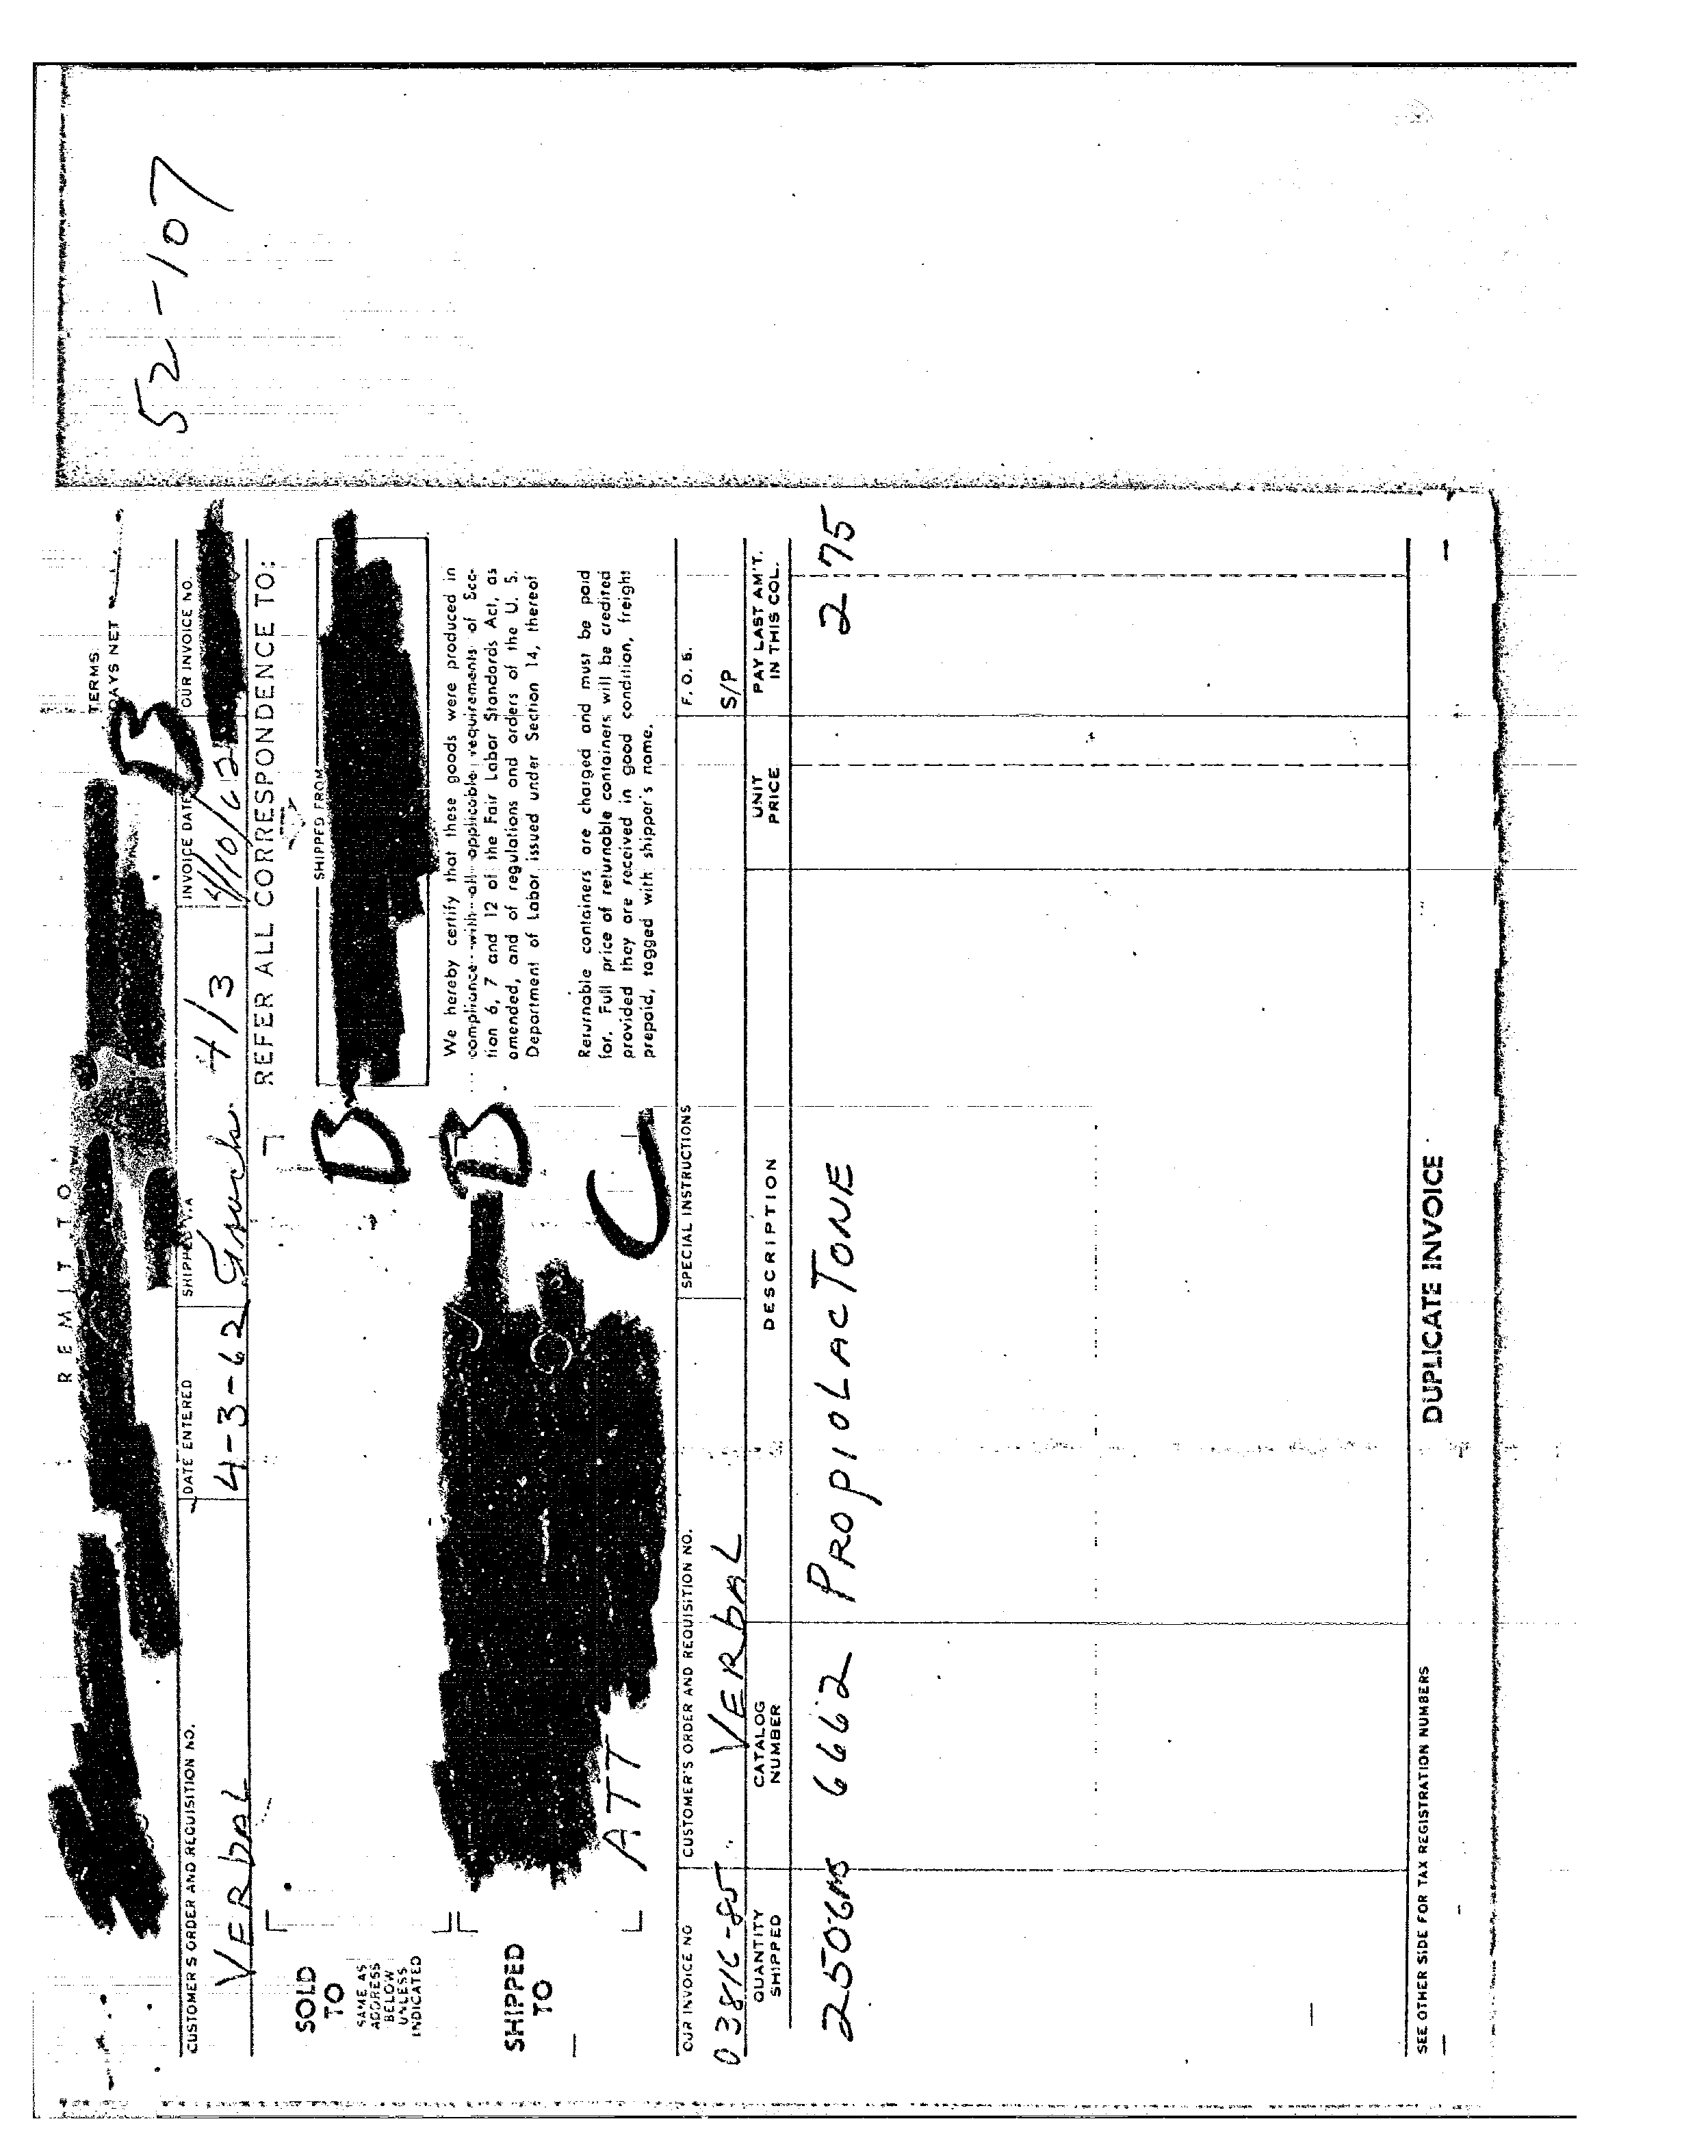 52-107
REMIT TO
TERMS:
DAYS NET
CUSTOMER'S ORDER AND REQUISITION NO.
DATE ENTERED
SHIPPED VIA
INVOICE DATE
OUR INVOICE NO.
VERbAL
4-3-62
4/3
4/10/62
B
REFER ALL CORRESPONDENCE TO:
SOLD
TO
SAME AS
ADDRESS
BELOW
UNLESS
INDICATED
SHIPPED FROM
B
We hereby certify that these goods were produced in
compliance with all applicable requirements of Sec-
tion 6, 7 and 12 of the Fair Labor Standards Act, as
amended, and of regulations and orders of the U. S.
Department of Labor issued under Section 14, thereof
SHIPPED
TO
B
ATT
C
Returnable containers are charged and must be paid
for. Full price of returnable containers will be credited
provided they are received in good condition, freight
prepaid, tagged with shipper's name.
OUR INVOICE NO
CUSTOMER'S ORDER AND REQUISITION NO.
SPECIAL INSTRUCTIONS
F. O. B.
03816-85
VERbAL
S/P
QUANTITY
SHIPPED
CATALOG
NUMBER
DESCRIPTION
UNIT
PRICE
PAY LAST AM'T.
IN THIS COL.
250GMS 6662 PROPIOLACTONE 2 75
SEE OTHER SIDE FOR TAX REGISTRATION NUMBERS
DUPLICATE INVOICE